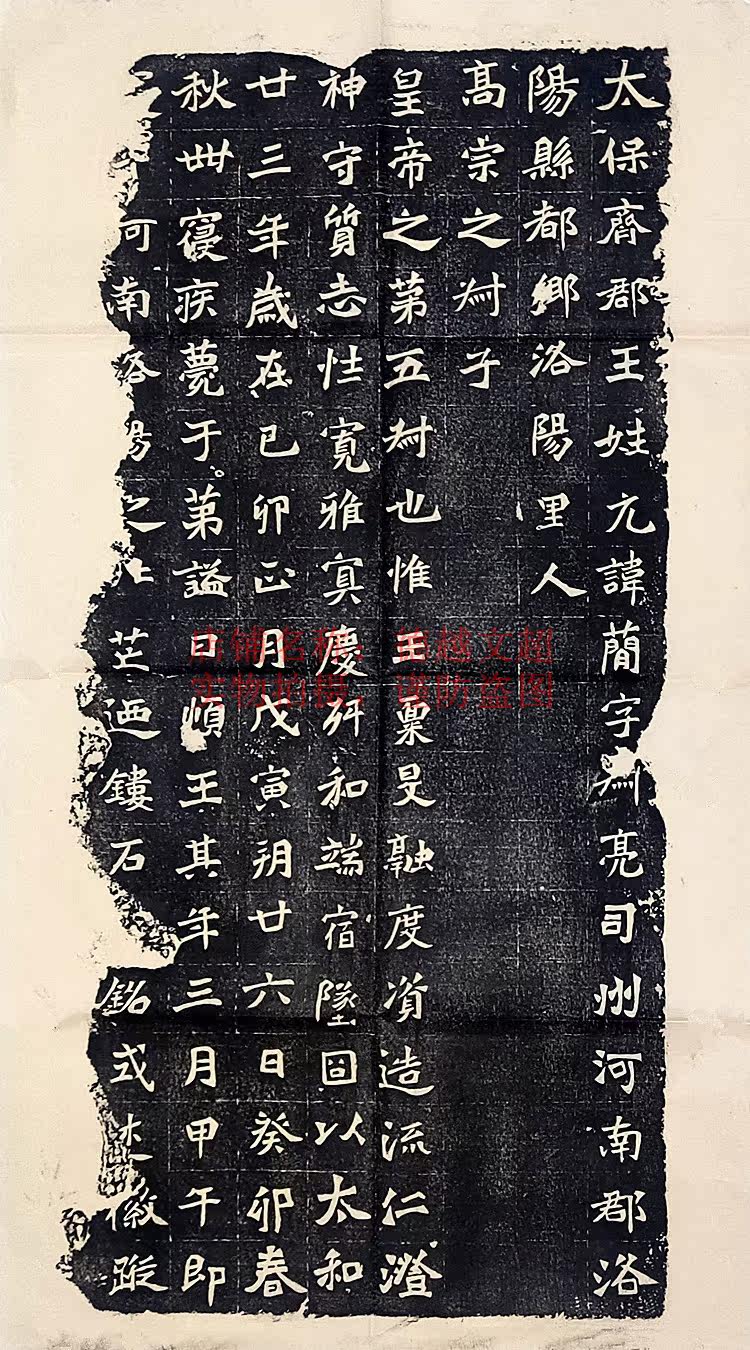 太保齊郡王姓元諱簡字叔亮司州河南郡洛
陽縣都鄉洛陽里人
高宗之叔子
皇帝之第五叔也惟王稟旻融度資造流仁澄
神守質志性寬雅冥慶舛和端宿墜固以太和
廿三年歲在己卯正月戊寅朔廿六日癸卯春
秋卌寢疾薨于第諡曰順王其年三月甲午即
河南洛陽之北芒迺鏤石銘式述徽蹤
店铺名称：越文超
实物拍摄，谨防盗图